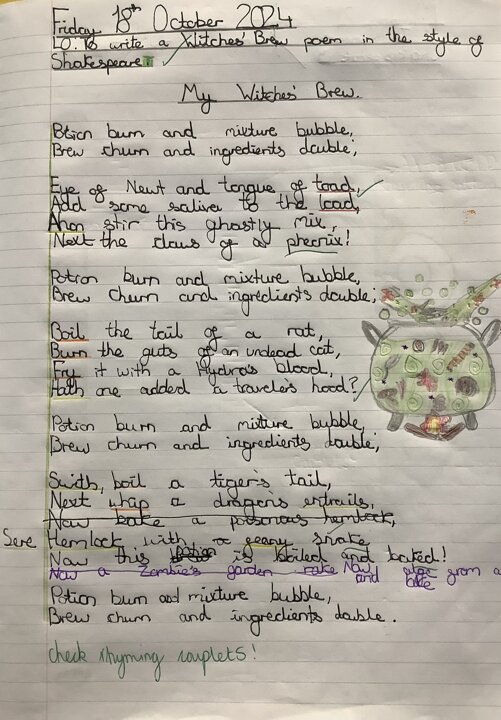 Friday 18th October 2024
L.O. To write a Witches' Brew poem in the style of
Shakespeare.
My Witches' Brew.
Potion burn and mixture bubble,
Brew churn and ingredients double;
Eye of Newt and tongue of toad,
Add some saliver to the load,
Anon stir this ghastly mix,
Next the claws of a pheonix!
Potion burn and mixture bubble,
Brew churn and ingredients double;
Boil the tail of a rat,
Burn the guts of an undead cat,
Fry it with a Hydra's blood,
Hath one added a traveler's hood?
Potion burn and mixture bubble,
Brew churn and ingredients double;
Swith, boil a tiger's tail,
Next whip a dragon's entrails,
Now bake a poisonous hemlock,
Sere Hemlock with a snake
Now this potion is boiled and baked!
Now a Zombie's garden rake Now
and from a
Potion burn and mixture bubble,
Brew churn and ingredients double.
check rhyming couplets!